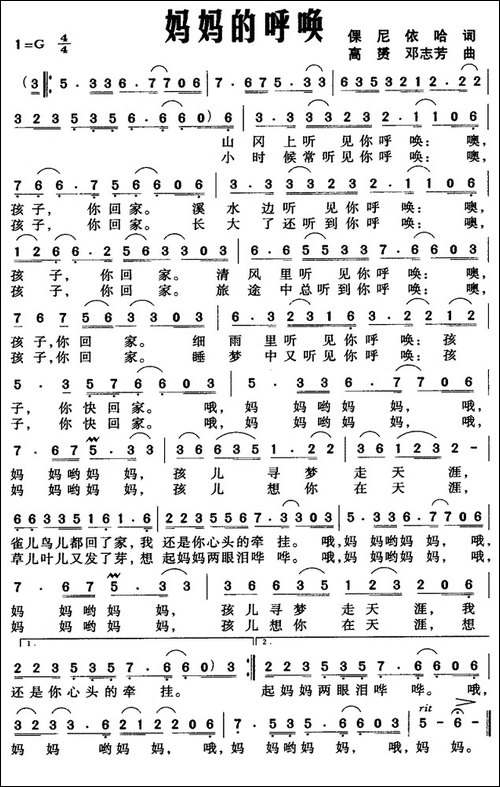 妈妈的呼唤
1=G 4/4
倮尼依哈 词
高赟 邓志芳 曲
(3 5·336·7706 | 7·675·33 | 6353212·22 |
3235356·660) 6 | 3·333232·1106 |
山冈上听见你呼唤：噢，
小时候常听见你呼唤：噢，
766·756606 | 3·333232·1106 |
孩子，你回家。溪水边听见你呼唤：噢，
孩子，你回家。长大了还听到你呼唤：噢，
1266·2563303 | 6·655337·6603 |
孩子，你回家。清风里听见你呼唤：噢，
孩子，你回家。旅途中总听到你呼唤：噢，
767567703 | 6·323163·2203 |
孩子，你回家。细雨里听见你呼唤：孩
孩子，你回家。睡梦中又听见你呼唤：孩
5·3576603 | 5·336·7706 |
子，你快回家。哦，妈妈哟妈妈，哦，
子，你快回家。哦，妈妈哟妈妈，哦，
7·675·33 | 366351·2 | 361232- |
妈妈哟妈妈，孩儿寻梦走天涯，
妈妈哟妈妈，孩儿想你在天涯，
6633515122023 | 5535567·3303 | 5·336·7706 |
雀儿鸟儿都回了家，我还是你心头的牵挂。哦，妈妈哟妈妈，哦，
草儿叶儿又发了芽，想起妈妈两眼泪哗哗。哦，妈妈哟妈妈，哦，
7·675·33 | 366351·2 | 3123206 |
妈妈哟妈妈，孩儿寻梦走天涯，我
妈妈哟妈妈，孩儿想你在天涯，想
1. 2.
2235357·660) 3 | 2235357·6606 |
还是你心头的牵挂。起妈妈两眼泪哗哗。哦，
rit
3233·6212206 | 7·535·6603 | 5- 6- |
妈妈哟妈妈，哦，妈妈哟妈妈，哦，妈妈。